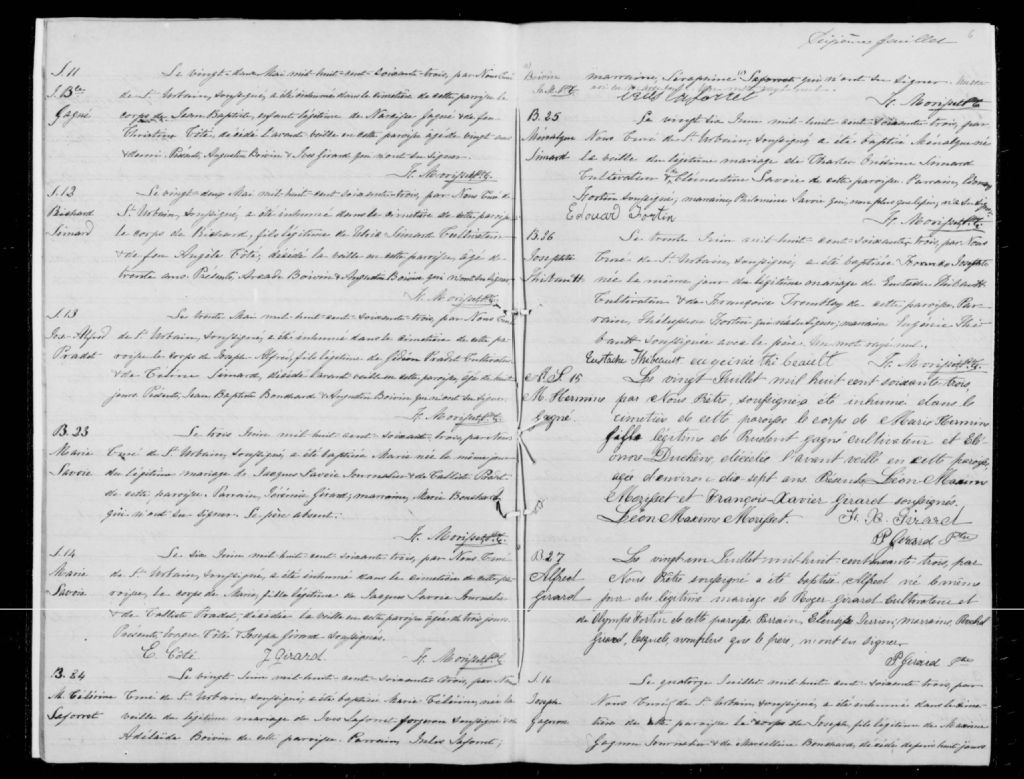 S. 11
J. Bte
Gagné
Le vingt-deux Mai mil-huit-cent-soixante-trois, par Nous Curé
de St. Urbain, soussigné, a été inhumé dans le cimetière de cette paroisse le
corps de Jean-Baptiste, enfant légitime de Narcisse Gagné & de feu
Christine Côté, décédé l'avant-veille en cette paroisse âgé de vingt ans
& demi. Présents, Augustin Boivin & Ives Girard qui n'ont su signer.
H. Morisset Ptre
S. 12
Richard
Simard
Le vingt-deux Mai mil-huit-cent-soixante-trois, par Nous Curé de
St. Urbain, soussigné, a été inhumé dans le cimetière de cette paroisse
le corps de Richard, fils légitime de Ulric Simard Cultivateur
& de feu Angèle Côté, décédé la veille en cette paroisse, âgé de
trente ans. Présents, Arcade Boivin & Augustin Boivin qui n'ont su signer.
H. Morisset Ptre
S. 13
Jos. Alfred
Pradet
Le trente Mai mil-huit-cent-soixante-trois, par Nous Curé
de St. Urbain, soussigné, a été inhumé dans le cimetière de cette pa-
roisse le corps de Joseph Alfred, fils légitime de Gédéon Pradet Cultivateur
& de Simard, décédé l'avant-veille en cette paroisse, âgé de huit
jours. Présents, Jean Baptiste Bouchard & Augustin Boivin qui n'ont su signer.
H. Morisset Ptre
B. 23
Marie
Savoie
Le trois Juin mil-huit-cent-soixante-trois, par Nous
Curé de St. Urbain, soussigné, a été baptisée Marie née le même jour
du légitime mariage de Jacques Savoie Journalier & de Calliste Pradet
de cette paroisse. Parrain, Jérémie Girard, marraine, Marie Bouchard
qui n'ont su signer. Le père absent.
H. Morisset Ptre
S. 14
Marie
Savoie
Le six Juin mil-huit-cent-soixante-trois, par Nous Curé
de St. Urbain, soussigné, a été inhumé dans le cimetière de cette pa-
roisse, le corps de Marie, fille légitime de Jacques Savoie Journalier
& de Calliste Pradet, décédée la veille en cette paroisse âgée de trois jours.
Présents, Côté & Joseph Girard soussignés.
E. Côté J. Girard H. Morisset Ptre
B. 24
M. Célérine
Laforret
Le vingt Juin mil-huit-cent-soixante-trois, par Nous
Curé de St. Urbain, soussigné, a été baptisée Marie Célérine, née la
veille du légitime mariage de Ives Laforret forgeron soussigné & de
Adélaïde Boivin de cette paroisse. Parrain, Jules Laforret;
Seizième feuillet
6
Boivin
marraine, Séraphine Laforret qui n'ont su signer.
H. Morisset Ptre
B. 25
Ménalque
Simard
Le vingt-six Juin mil-huit-cent-soixante-trois, par
Nous Curé de St. Urbain, soussigné a été baptisé Ménalque né
la veille du légitime mariage de Charles Onésime Simard
Cultivateur & Clémentine Savoie de cette paroisse. Parrain, Edouard
Fortin soussigné, marraine, Philomène Savoie qui, non plus que le père, n'a su signer.
Edouard Fortin H. Morisset Ptre
B. 26
Josephte
Thibeault
Le trente Juin mil-huit-cent-soixante-trois, par Nous
Curé de St. Urbain, soussigné, a été baptisée Josephte
née le même jour du légitime mariage de Eustache Thibeault
Cultivateur & de Françoise Tremblay de cette paroisse. Par-
rain, Télesphore Fortin qui n'a su signer; marraine Eugénie Thi-
beault soussignée avec le père. Un mot rayé nul.
Eustache Thibeault eugénie thibeault H. Morisset Ptre
S. 15
M. Hermine
Gagné.
Le vingt Juillet mil huit cent soixante trois,
par Nous Prêtre, soussigné a été inhumé dans le
cimetière de cette paroisse le corps de Marie Hermine
fille légitime de Prudent Gagné cultivateur et Elé-
onore Duchêne, décédée l'avant veille en cette paroisse,
agée d'environ dix-sept ans. Présents Léon Maxime
Morisset et François-Xavier Girard soussignés.
Léon Maxime Morisset. F. X. Girard
P Girard Ptre
B. 27
Alfred
Girard
Le vingt-un Juillet mil huit cent soixante trois, par
Nous Prêtre soussigné a été baptisé Alfred né le même
jour du légitime mariage de Roger Girard Cultivateur et
de Olympe Fortin de cette paroisse. Parrain, marraine, Rachel
Girard, lesquels, non plus que le père, n'ont su signer.
P Girard Ptre
S. 16
Joseph
Gagnon
Le quatorze Juillet mil-huit-cent-soixante-trois, par
Nous Curé de St. Urbain, soussigné, a été inhumé dans le cime-
tière de cette paroisse le corps de Joseph, fils légitime de Maxime
Gagnon Journalier & de Marcelline Bouchard, décédé depuis huit jours